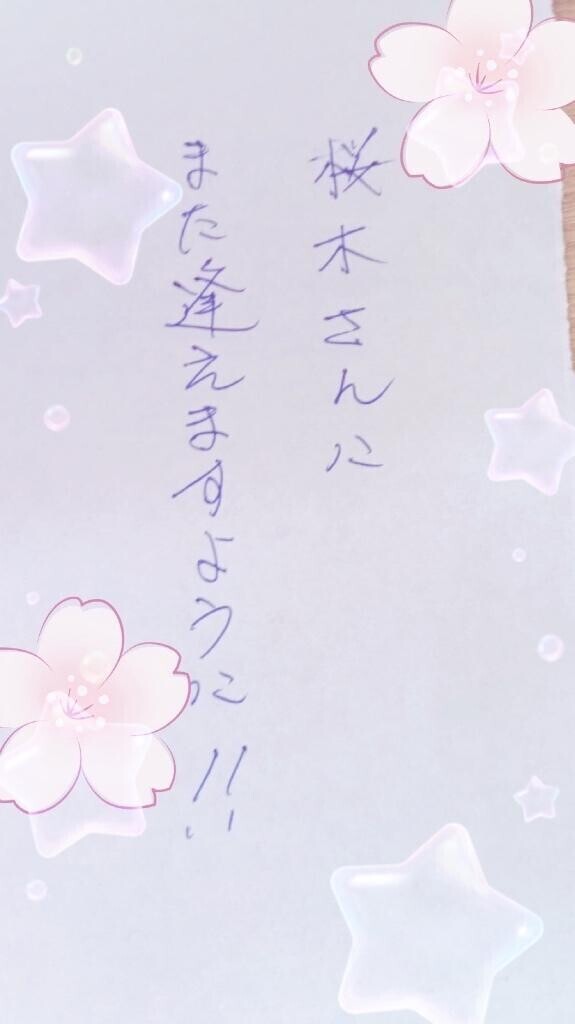 桜木さんに
また逢えますように!!